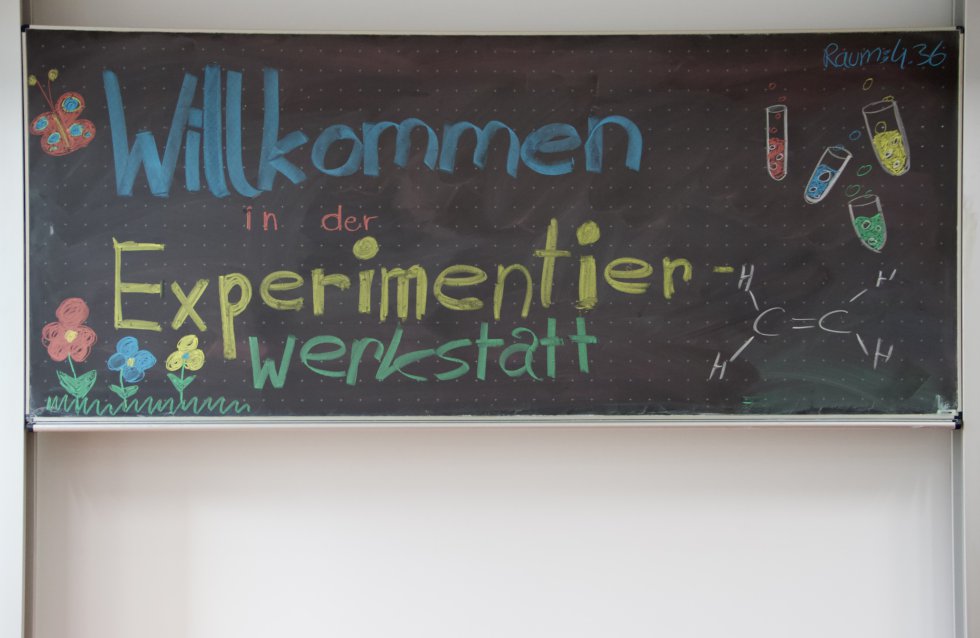 Raum: 4.36
Willkommen
in der
Experimentier-
werkstatt
H H
C=C
H H